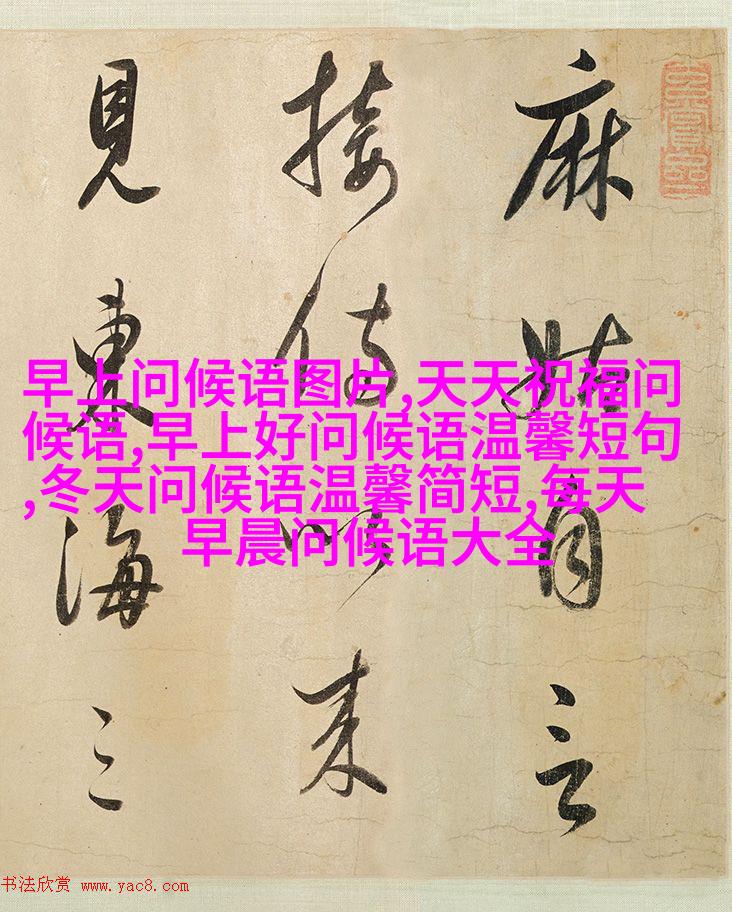 麻姑自言
接侍以来
見東海三
早上问候语图片,天天祝福问
候语,早上好问候语温馨短句
,冬天问候语温馨简短,每天
早晨问候语大全
书法欣赏 www.yac8.com